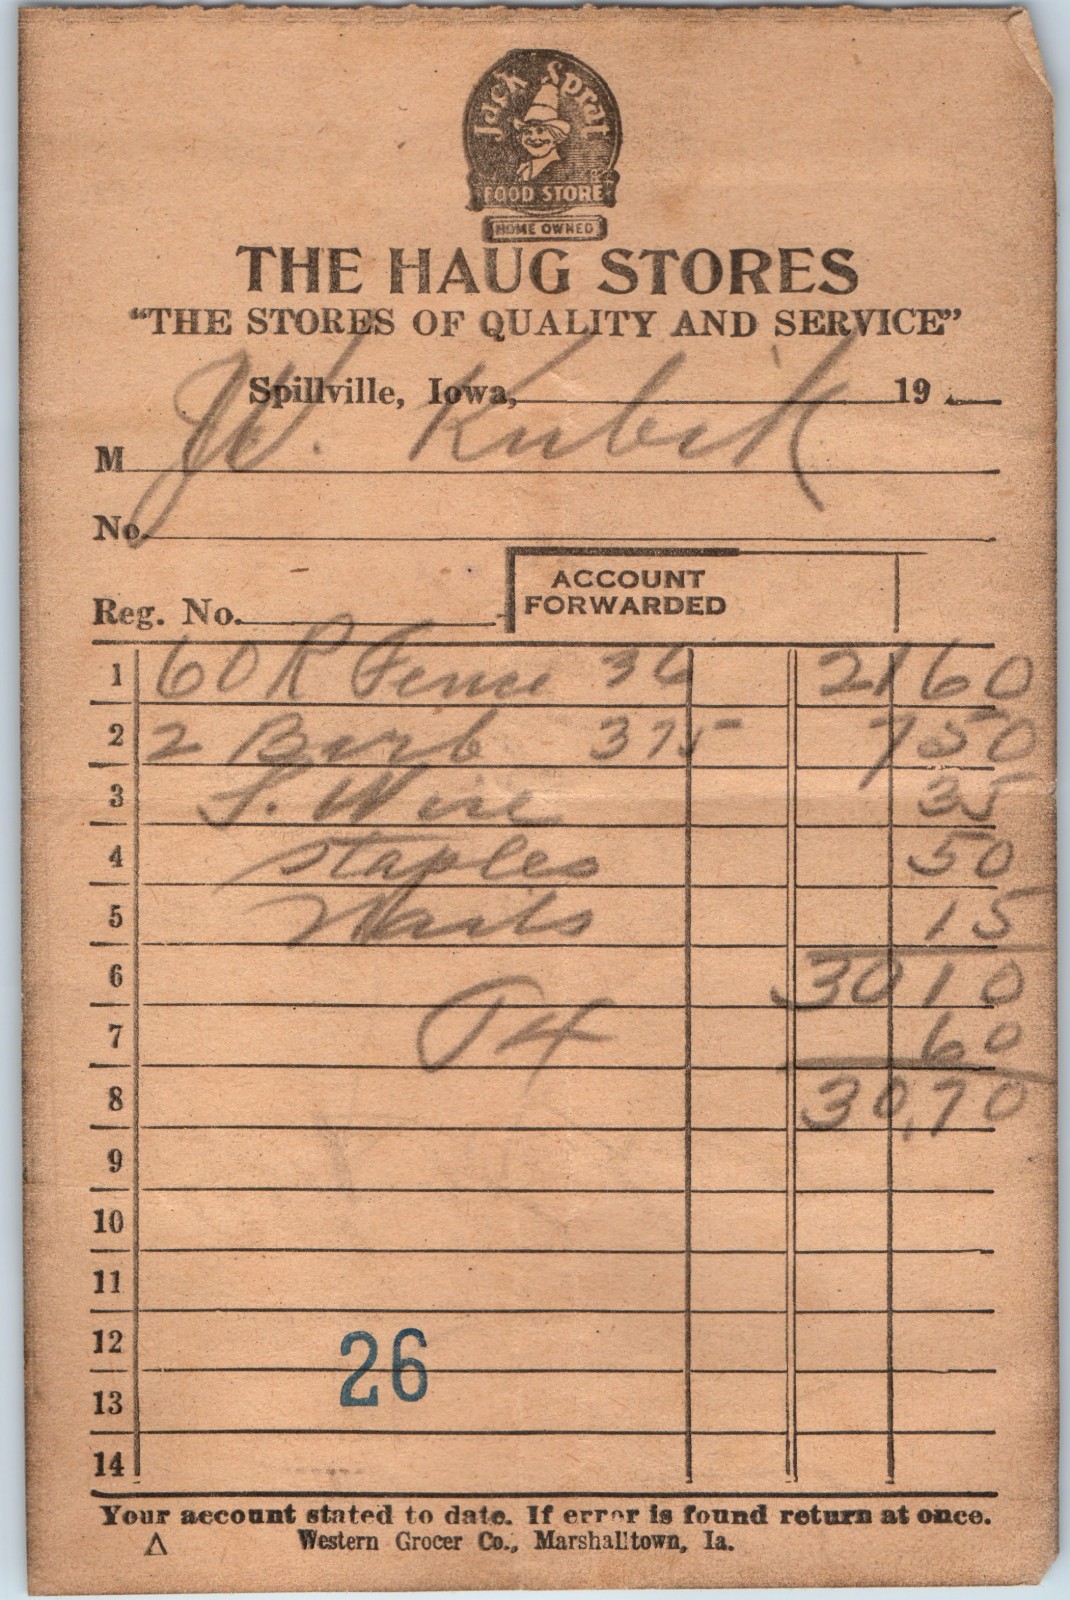 Jack Sprat
FOOD STORE
HOME OWNED
THE HAUG STORES
"THE STORES OF QUALITY AND SERVICE"
Spillville, Iowa, 19
M J.W. Kubik
No.
Reg. No.
ACCOUNT
FORWARDED
1 60 R Fence 36 21 60
2 2 Barb 375 7 50
3 S. Wire 35
4 Staples 50
5 Nails 15
6 30 10
7 60
8 30.70
9
10
11
12
26
13
14
Your account stated to date. If error is found return at once.
Western Grocer Co., Marshalltown, Ia.